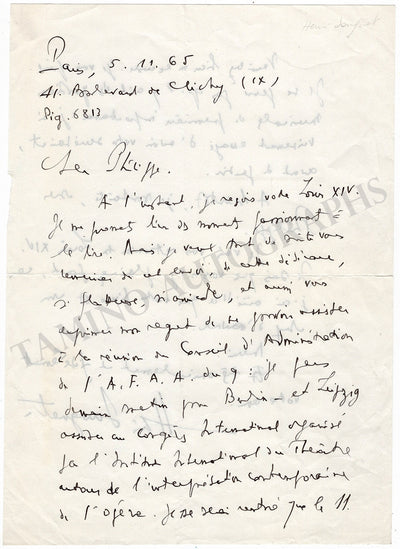 Henri Sauguet
Paris, 5.11.65
41. Boulevard de Clichy (IX)
Pig. 6813
Cher Philippe.
A l'instant, je reçois votre Louis XIV.
Je me promets bien des moments passionnants à
le lire. Mais je veux tout de suite vous
remercier de cet envoi, de cette dédicace,
si flatteuse, si amicale, et aussi vous
exprimer mon regret de ne pouvoir assister
à la réunion du Conseil d'Administration
de l'A.F.A.A. du 9 : je pars
demain matin pour Berlin - et Leipzig
assister au Congrès International organisé
par l'Institut International du Théâtre
autour de l'interprétation contemporaine
de l'opéra. Je ne serai rentré que le 11.
TAMINO AUTOGRAPHS